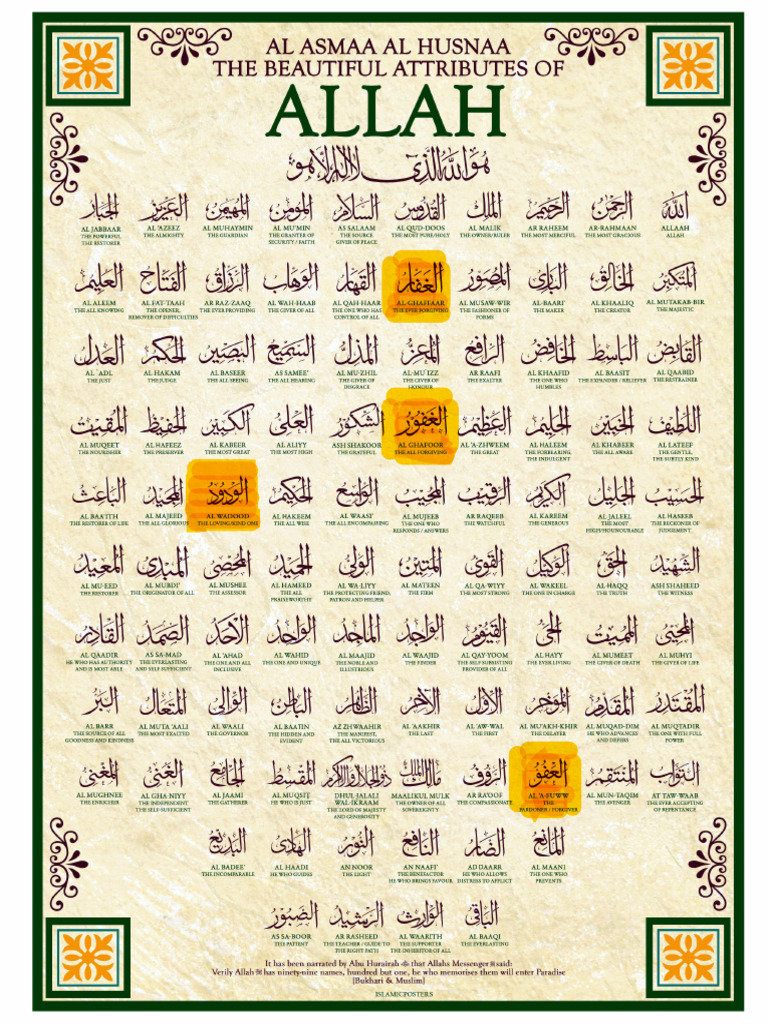 AL ASMAA AL HUSNAA
THE BEAUTIFUL ATTRIBUTES OF
ALLAH
هو الله الذي لا اله الا هو
الله
ALLAAH
ALLAH
الرحمن
AR-RAHMAAN
THE MOST GRACIOUS
الرحيم
AR RAHEEM
THE MOST MERCIFUL
الملك
AL MALIK
THE OWNER/RULER
القدوس
AL QUD-DOOS
THE MOST PURE/HOLY
السلام
AS SALAAM
THE SOURCE
GIVER OF PEACE
المؤمن
AL MU'MIN
THE GRANTER OF
SECURITY / FAITH
المهيمن
AL MUHAYMIN
THE GUARDIAN
العزيز
AL 'AZEEZ
THE ALMIGHTY
الجبار
AL JABBAAR
THE POWERFUL,
THE RESTORER
المتكبر
AL MUTAKAB-BIR
THE MAJESTIC
الخالق
AL KHAALIQ
THE CREATOR
البارئ
AL-BAARI'
THE MAKER
المصور
AL MUSAW-WIR
THE FASHIONER OF
FORMS
الغفار
AL-GHAFFAAR
THE EVER FORGIVING
القهار
AL QAH-HAAR
THE ONE WHO HAS
CONTROL OF ALL
الوهاب
AL WAH-HAAB
THE GIVER OF ALL
الرزاق
AR RAZ-ZAAQ
THE EVER PROVIDING
الفتاح
AL FAT-TAAH
THE OPENER,
REMOVER OF DIFFICULTIES
العليم
AL ALEEM
THE ALL KNOWING
القابض
AL QAABID
THE RESTRAINER
الباسط
AL BAASIT
THE EXPANDER / RELIEVER
الخافض
AL KHAAFID
THE ONE WHO
HUMBLES
الرافع
AR RAAFI
THE EXALTER
المعز
AL-MU'IZZ
THE GIVER OF
HONOUR
المذل
AL MU-ZHIL
THE GIVER OF
DISGRACE
السميع
AS SAMEE'
THE ALL HEARING
البصير
AL BASEER
THE ALL SEEING
الحكم
AL HAKAM
THE JUDGE
العدل
AL 'ADL
THE JUST
اللطيف
AL LATEEF
THE GENTLE,
THE SUBTLY KIND
الخبير
AL KHABEER
THE ALL AWARE
الحليم
AL HALEEM
THE FORBEARING,
THE INDULGENT
العظيم
AL 'A-ZHWEEM
THE GREAT
الغفور
AL GHAFOOR
THE ALL FORGIVING
الشكور
ASH SHAKOOR
THE GRATEFUL
العلي
AL ALIYY
THE MOST HIGH
الكبير
AL KABEER
THE MOST GREAT
الحفيظ
AL HAFEEZ
THE PRESERVER
المقيت
AL MUQEET
THE NOURISHER
الحسيب
AL HASEEB
THE RECKONER OF
JUDGEMENT,
الجليل
AL JALEEL
THE MOST
HIGH/HOUNOURABLE
الكريم
AL KAREEM
THE GENEROUS
الرقيب
AR RAQEEB
THE WATCHFUL
المجيب
AL MUJEEB
THE ONE WHO
RESPONDS / ANSWERS
الواسع
AL WAASI'
THE ALL ENCOMPASING
الحكيم
AL HAKEEM
THE ALL WISE
الودود
AL WADOOD
THE LOVING/KIND ONE
المجيد
AL MAJEED
THE ALL GLORIOUS
الباعث
AL BAAITH
THE RESTORER OF LIFE
الشهيد
ASH SHAHEED
THE WITNESS
الحق
AL-HAQQ
THE TRUTH
الوكيل
AL WAKEEL
THE ONE IN CHARGE
القوي
AL QA-WIYY
THE MOST STRONG
المتين
AL MATEEN
THE FIRM
الولي
AL WA-LIYY
THE PROTECTING FRIEND,
PATRON AND HELPER
الحميد
AL HAMEED
THE ALL
PRAISEWORTHY
المحصي
AL MUHSEE
THE ASSESSOR
المبدئ
AL MUBDI'
THE ORIGINATOR OF ALL
المعيد
AL MU-EED
THE RESTORER
المحيي
AL MUHYI
THE GIVER OF LIFE
المميت
AL MUMEET
THE GIVER OF DEATH
الحي
AL HAYY
THE EVER LIVING
القيوم
AL QAY-YOOM
THE SELF SUBSISTING
PROVIDER OF ALL
الواجد
AL WAAJID
THE FINDER
الماجد
AL MAAJID
THE NOBLE AND
ILLUSTRIOUS
الواحد
AL WAHID
THE ONE AND UNIQUE
الأحد
AL 'AHAD
THE ONE AND ALL
INCLUSIVE
الصمد
AS SA-MAD
THE EVERLASTING
AND SELF SUFFICIENT
القادر
AL QAADIR
HE WHO HAS AUTHORITY
AND IS MOST ABLE
المقتدر
AL MUQTADIR
THE ONE WITH FULL
POWER
المقدم
AL MUQAD-DIM
HE WHO ADVANCES
AND DEFERS
المؤخر
AL MU'AKH-KHIR
THE DELAYER
الأول
AL 'AW-WAL
THE FIRST
الآخر
AL 'AAKHIR
THE LAST
الظاهر
AZ ZHWAAHIR
THE MANIFEST,
THE ALL VICTORIOUS
الباطن
AL BAATIN
THE HIDDEN AND
EVIDENT
الوالي
AL WAALI
THE GOVERNOR
المتعال
AL MUTA 'AALI
THE MOST EXALTED
البر
AL BARR
THE SOURCE OF ALL
GOODNESS AND KINDNESS
التواب
AT TAW-WAAB
THE EVER ACCEPTING
OF REPENTANCE
المنتقم
AL MUN-TAQIM
THE AVENGER
العفو
AL 'A-FUWW
THE
PARDONER / FORGIVER
الرؤوف
AR RA'OOF
THE COMPASSIONATE
مالك الملك
MAALIKUL MULK
THE OWNER OF ALL
SOVEREIGNTY
ذو الجلال والاكرام
DHUL-JALALI
WAL-IKRAAM
THE LORD OF MAJESTY
AND GENEROSITY
المقسط
AL MUQSIT
HE WHO IS JUST
الجامع
AL JAAMI
THE GATHERER
الغني
AL GHA-NIYY
THE INDEPENDENT
THE SELF-SUFFICIENT
المغني
AL MUGHNEE
THE ENRICHER
المانع
AL MAANI
THE ONE WHO
PREVENTS
الضار
AD DAARR
HE WHO ALLOWS
DISTRESS TO AFFLICT
النافع
AN NAAFI'
THE BENEFACTOR
HE WHO BRINGS FAVOUR
النور
AN NOOR
THE LIGHT
الهادي
AL HAADI
HE WHO GUIDES
البديع
AL BADEE'
THE INCOMPARABLE
الباقي
AL BAAQI
THE EVERLASTING
الوارث
AL WAARITH
THE SUPPORTER
THE INHERITOR OF ALL
الرشيد
AR RASHEED
THE TEACHER / GUIDE TO
THE RIGHT PATH
الصبور
AS SA-BOOR
THE PATIENT
It has been narrated by Abu Hurairah that Allahs Messenger ﷺ said:
Verily Allah has ninety-nine names, hundred but one, he who memorises them will enter Paradise
[Bukhari & Muslim]
ISLAMICPOSTERS